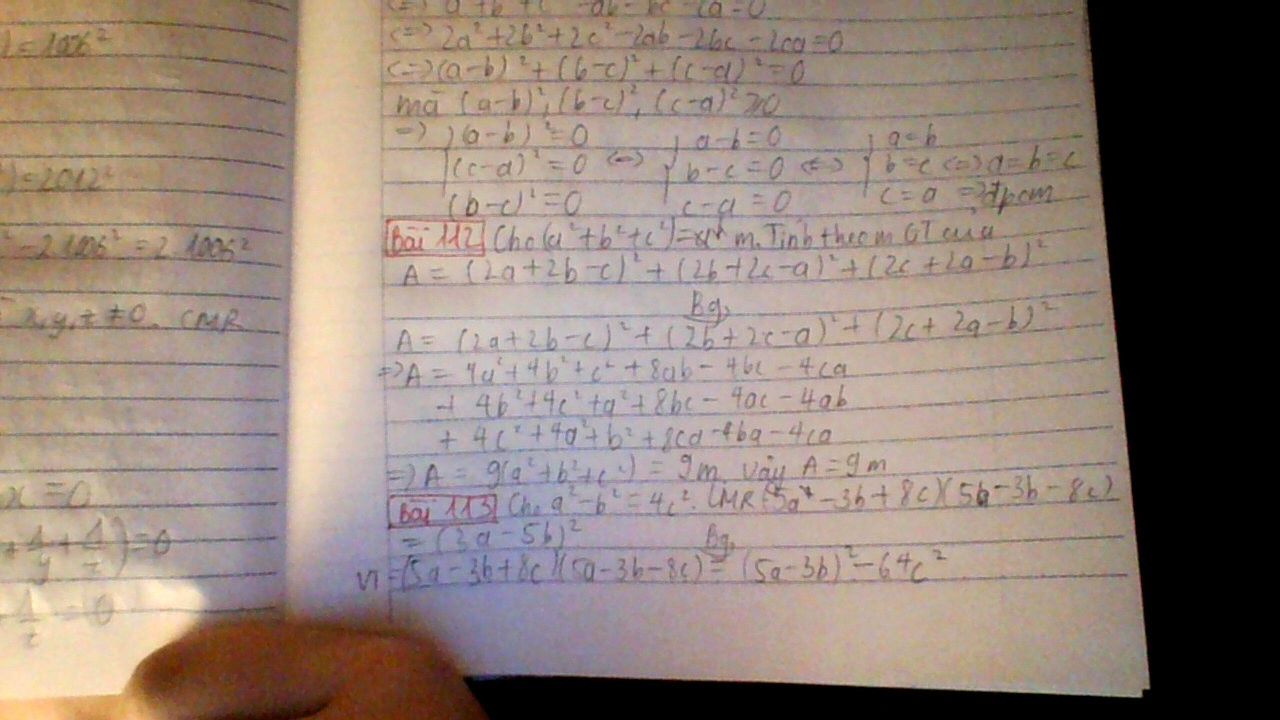 ) = 1006²
) = 2012²
² - 2.1006² = 2.1006²
x, y, z ≠ 0. CMR
x = 0
+ 1/y + 1/z) = 0
1/z = 0
(=) 2a² + 2b² + 2c² - 2ab - 2bc - 2ca = 0
(=) (a-b)² + (b-c)² + (c-a)² = 0
mà (a-b)², (b-c)², (c-a)² ≥ 0
=) (a-b)² = 0 a-b = 0 a = b
(c-a)² = 0 (=) b-c = 0 (=) b = c (=) a = b = c
(b-c)² = 0 c-a = 0 c = a => đpcm
Bài 112 Cho (a² + b² + c²) = m. Tính theo m GT của
A = (2a+2b-c)² + (2b+2c-a)² + (2c+2a-b)²
Bg
A = (2a+2b-c)² + (2b+2c-a)² + (2c+2a-b)²
=> A = 4a² + 4b² + c² + 8ab - 4bc - 4ca
+ 4b² + 4c² + a² + 8bc - 4ac - 4ab
+ 4c² + 4a² + b² + 8ca - 4ba - 4ca
=> A = 9(a² + b² + c²) = 9m vậy A = 9m
Bài 113 Cho a² - b² = 4c². CMR (5a - 3b + 8c)(5a - 3b - 8c)
= (3a - 5b)² Bg
VT = (5a - 3b + 8c)(5a - 3b - 8c) = (5a - 3b)² - 64c²